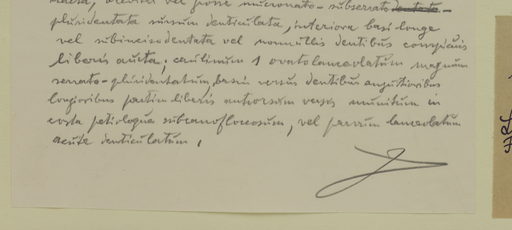 vel pone mucronato-subserrato dentata-
plusidentata sursum denticulata, interiora basi longe
vel subincisodentata vel nonnullis dentibus conspicuis
liberis aucta; caulinum 1 ovatolanceolatum magnum
serrato-plusidentatum, basin versus dentibus angustioribus
longioribus partim liberis antrorsum versis munitum in
costa petioloque subcanofloccosum, vel parvum lanceolatum
acute denticulatum.